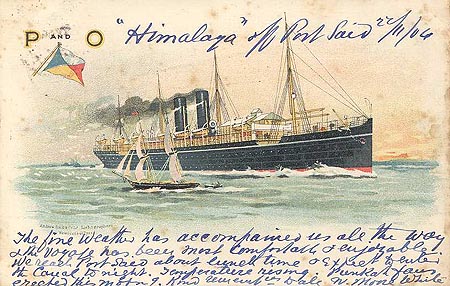 P AND O "Himalaya" off Port Said 22/11/04
The fine Weather has accompanied us all the way
& the Voyage has been most comfortable & enjoyable.
We reach Port Said about lunch time & expect to enter
the Canal to night. Temperature rising. Punkah fans
erected this morng. Kind